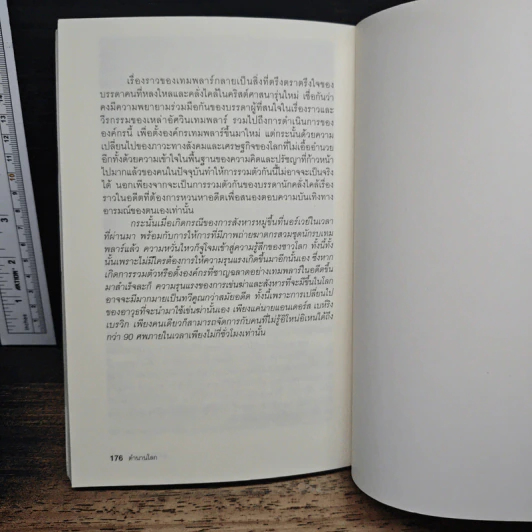 เรื่องราวของเทมพลาร์กลายเป็นสิ่งที่ตรึงตราตรึงใจของ
บรรดาคนที่หลงใหลและคลั่งไคล้ในคริสต์ศาสนารุ่นใหม่ เชื่อกันว่า
คงมีความพยายามร่วมมือกันของบรรดาผู้ที่สนใจในเรื่องราวและ
วีรกรรมของเหล่าอัศวินเทมพลาร์ รวมไปถึงการดำเนินการของ
องค์กรนี้ เพื่อตั้งองค์กรเทมพลาร์ขึ้นมาใหม่ แต่กระนั้นด้วยความ
เปลี่ยนไปของภาวะทางสังคมและเศรษฐกิจของโลกที่ไม่เอื้ออำนวย
อีกทั้งด้วยความเข้าใจในพื้นฐานของความคิดและปรัชญาที่ก้าวหน้า
ไปมากแล้วของคนในปัจจุบันทำให้การรวมตัวกันนี้ไม่อาจจะเป็นจริง
ได้ นอกเพียงจากจะเป็นการรวมตัวกันของบรรดานักคลั่งไคล้เรื่อง
ราวในอดีตที่ต้องการหวนหาอดีตเพื่อสนองตอบความบันเทิงทาง
อารมณ์ของตนเองเท่านั้น
กระนั้นเมื่อเกิดกรณีของการสังหารหมู่ขึ้นที่นอร์เวย์ในเวลา
ที่ผ่านมา พร้อมกับการให้การที่มีภาพถ่ายฆาตกรสวมชุดนักรบเทม
พลาร์แล้ว ความหวั่นไหวก็จู่โจมเข้าสู่ความรู้สึกของชาวโลก ทั้งนี้ทั้ง
นั้นเพราะไม่มีใครต้องการให้ความรุนแรงเกิดขึ้นมาอีกนั่นเอง ซึ่งหาก
เกิดการรวมตัวหรือตั้งองค์กรที่ชาญฉลาดอย่างเทมพลาร์ในอดีตขึ้น
มาสำเร็จละก็ ความรุนแรงของการเข่นฆ่าและสังหารที่จะมีขึ้นในโลก
อาจจะมีมากมายเป็นทวีคูณกว่าสมัยอดีต ทั้งนี้เพราะการเปลี่ยนไป
ของอาวุธที่จะนำมาใช้เข่นฆ่านั่นเอง เพียงแค่นายแอนเดอร์ส เบห์ริง
เบรวิก เพียงคนเดียวก็สามารถจัดการกับคนที่ไม่รู้อีโหน่อีเหน่ได้ถึง
กว่า 90 ศพภายในเวลาเพียงไม่กี่ชั่วโมงเท่านั้น
176 ตำนานโลก